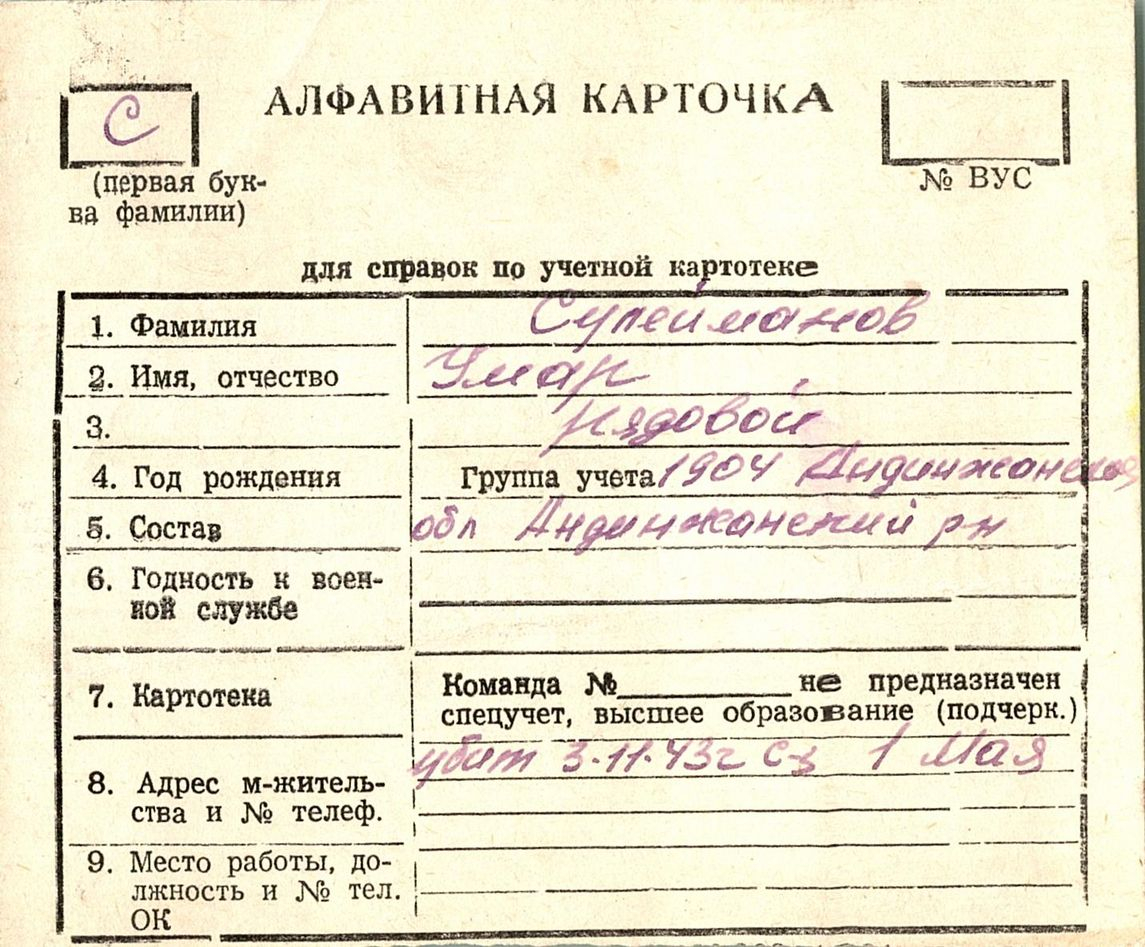 С
АЛФАВИТНАЯ КАРТОЧКА
(первая бук-
ва фамилии)
№ ВУС
для справок по учетной картотеке
1. Фамилия Сулейманов
2. Имя, отчество Умар
3. рядовой
4. Год рождения Группа учета 1904 Андинжанская
5. Состав обл Андинжанский рн
6. Годность к воен-
ной службе
7. Картотека Команда №__________ не предназначен
спецучет, высшее образование (подчерк.)
убит 3.11.43г с-з 1 Мая
8. Адрес м-житель-
ства и № телеф.
9. Место работы, до-
лжность и № тел.
ОК